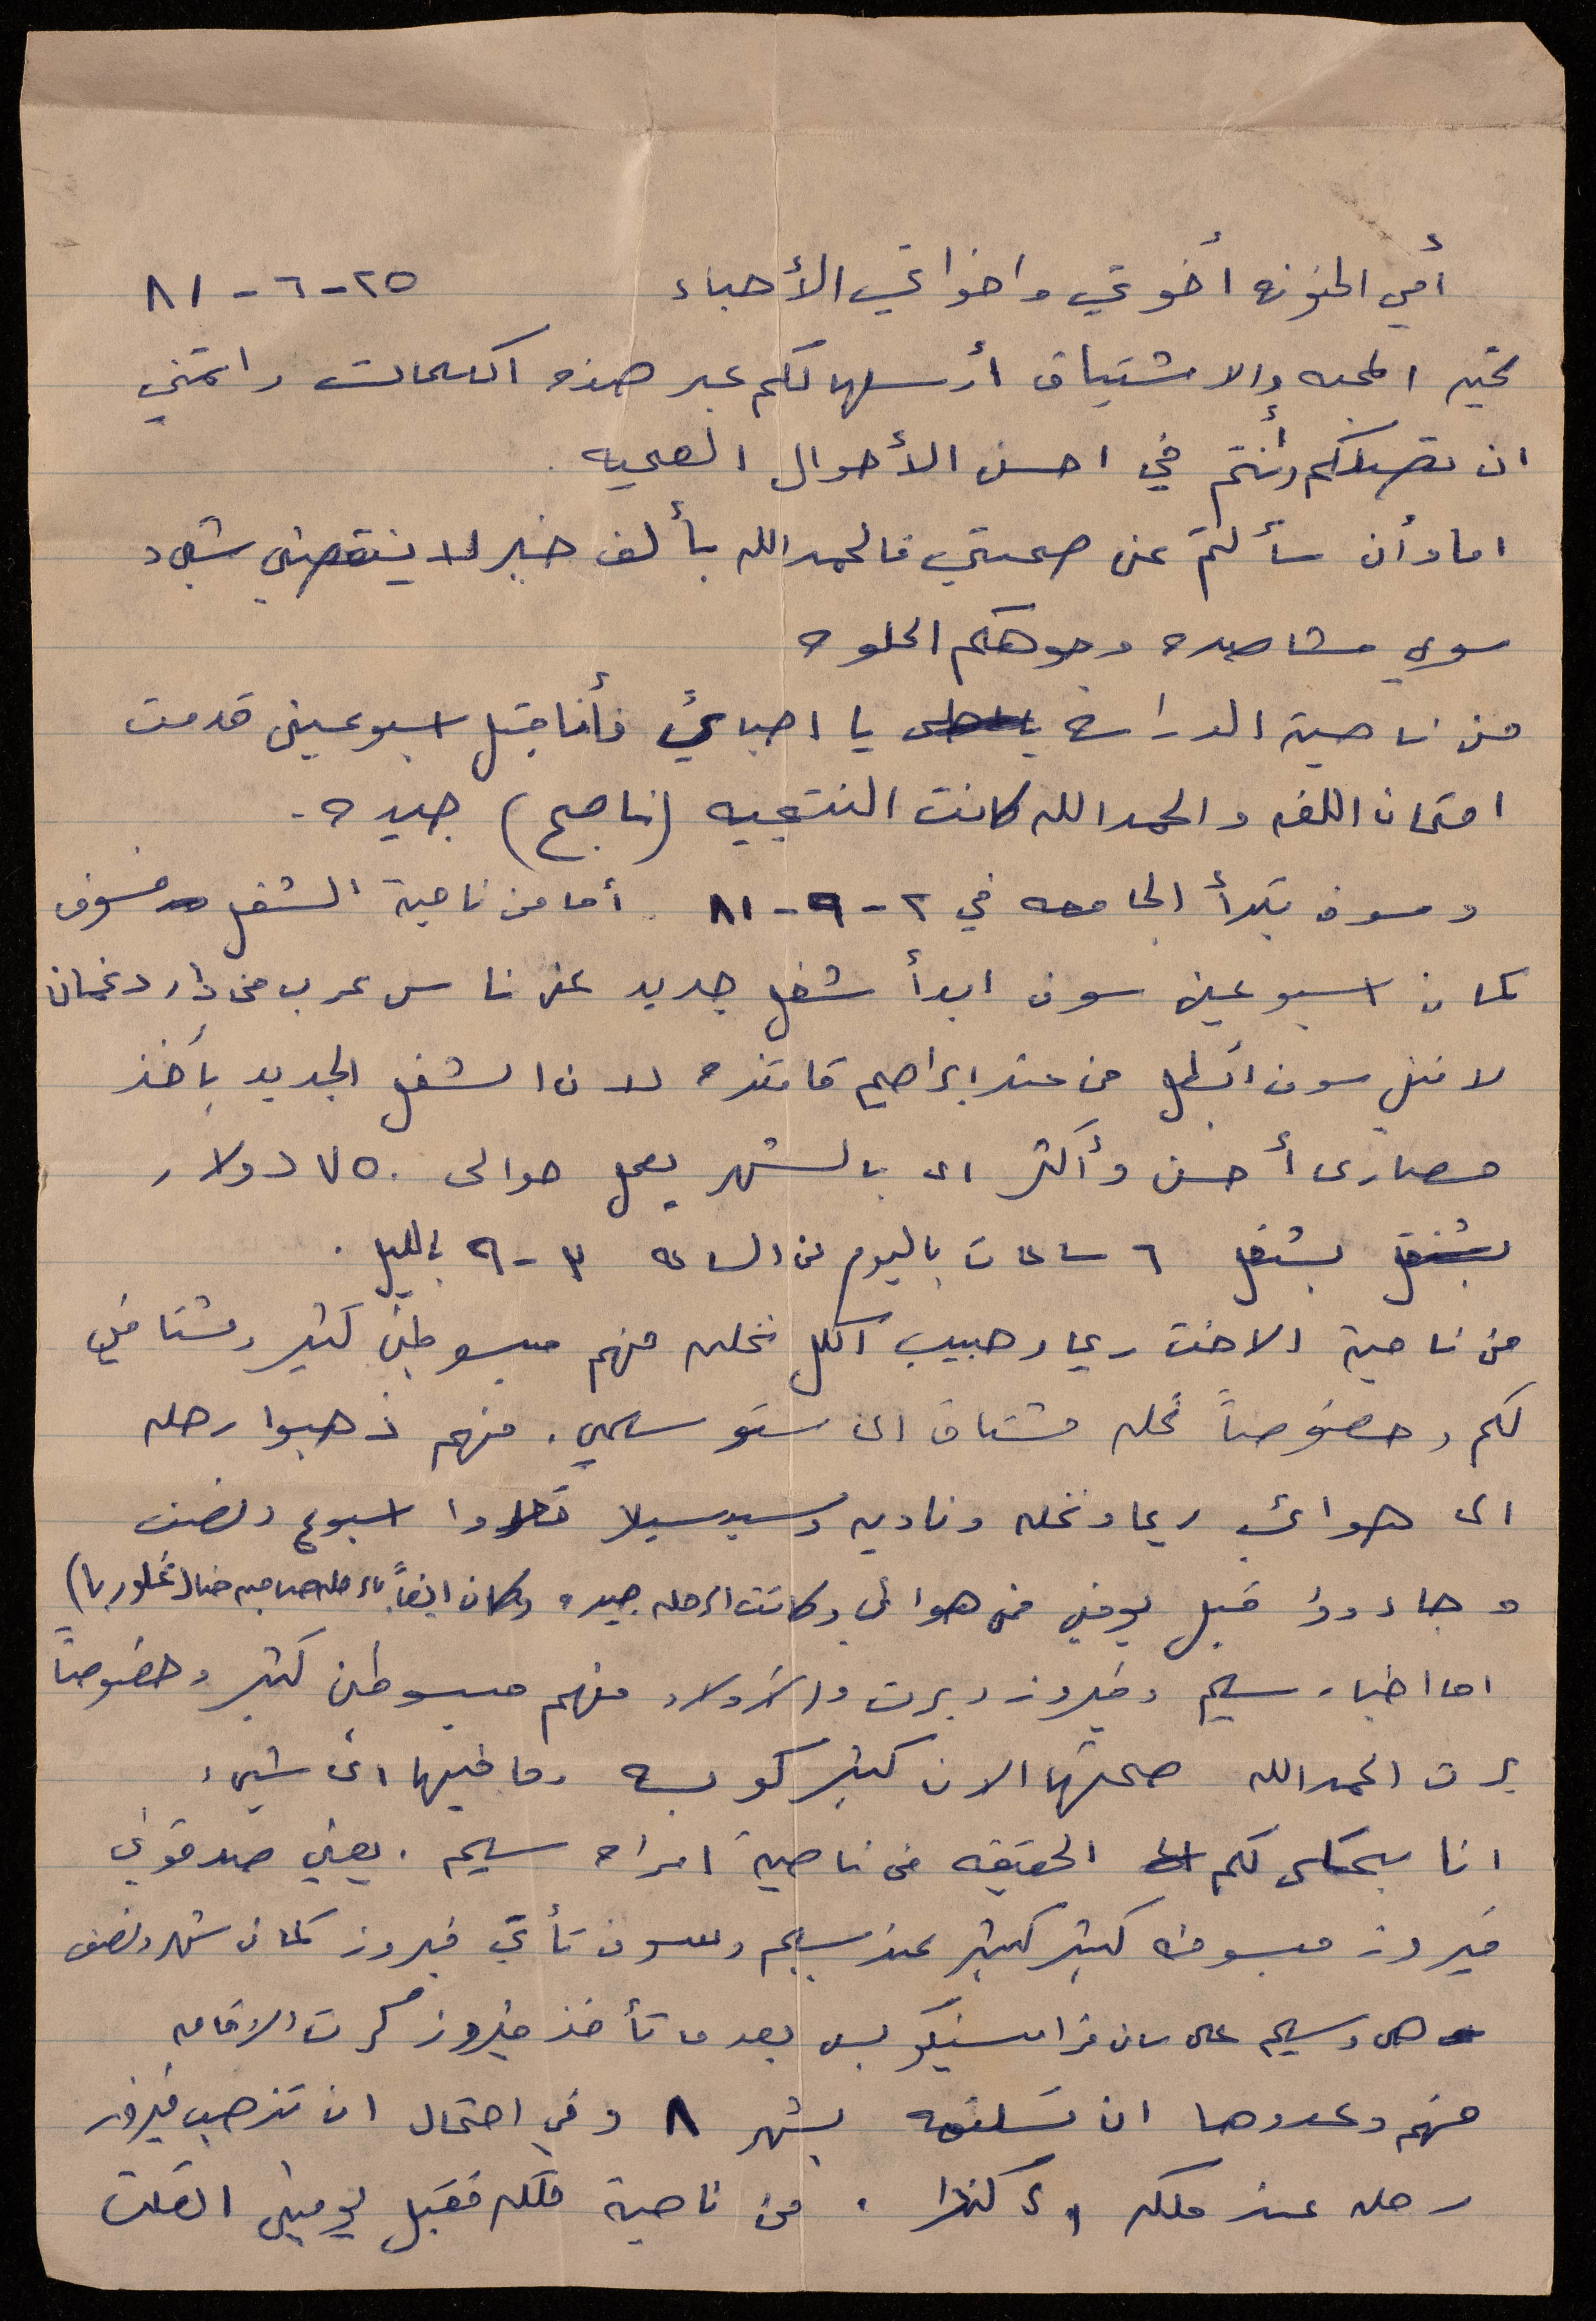 أمي الحنونه أخوتي واخواتي الأحباء ٢٥-٦-٨١
تحيه المحبه والاشتياق أرسلها لكم عبر هذه الكلمات راتمني
ان تصلكم وأنتم في احسن الأحوال الصحيه .
اما وأن سألتم عن صحتي فالحمدالله بألف خير لا ينقصني شيء
سوي مشاهده وجوهكم الحلوه
من ناحية الدراسه يا احبائي فأنا قبل اسبوعين قدمت
امتحان اللغه والحمدالله كانت النتيجيه (ناجح) جيده .
وسوف تبدأ الجامعه في ٢-٩-٨١ . أما من ناحية الشغل فسوف
كمان اسبوعين سوف ابدأ شغل جديد عن ناس عرب من دار دغمان
لانني سوف ابطل من عند ابراهيم لان الشغل الجديد بأخذ
مصارى أحسن وأكثر اى بالشهر بعمل حوالى ٧٥٠ دولار
بشتغل ٦ ساعات باليوم من الساعه ٣-٩ بالليل .
من ناحية الاخت ريما وحبيب اكل نخله منهم مبسوطين كتير ومشتاقين
لكم وخصوصاً نخله مشتاق الى ستو سلمى . منهم ذهبوا رحله
الى هوائي ريما ونخله وناديه وسيسيلا اسبوع ونصف
وجاءوا قبل يومين من هوائي وكانت الرحله جيده وكمان ايضاً
اما اخبار سليم وفيروز وبرت والاولاد منهم مبسوطين كتير وخصوصاً
برت الحمدالله صحتها الان كتير كويسه وما فيها اى شيء
انا بحكى لكم الحقيقه من ناحية امراه سليم . يعني صدقوني
فيروز مبسوطه كتير كتير عند سليم وسوف تأتي فيروز كمان شهر ونصف
هى وسليم على سان فرانسيكو بس بعد ما تأخذ فيروز كرت الاقامه
منهم وعدوها ان تستلمه بشهر ٨ وفي احتمال ان تذهب فيروز
رحله عند ملكه كندا . من ناحية ملكه فقبل يومين اتصلت